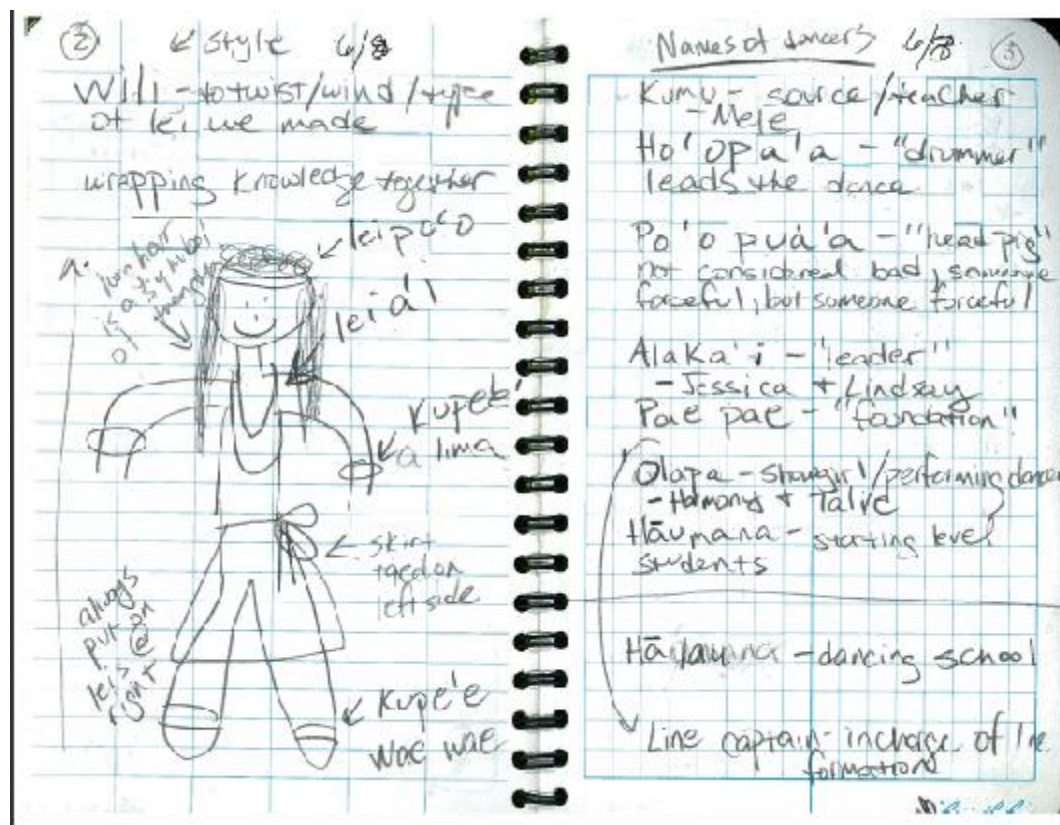 2 ↙ style 6/8
Wili - to twist/wind/type
of lei we made
wrapping knowledge together
lei po'o
long hair
is a symbol
of strength
lei a'i
Kupe'e
a lima
skirt
tied on
left side
always
put on
leis @
right
Kupe'e
wae wae
Names of dancers 6/8 3
Kumu - source/teacher
- Mele
Ho'opa'a - "drummer"
leads the dance
Po'o pua'a - "head pig"
not considered bad,
forceful, but someone forceful
Alaka'i - "leader"
- Jessica + Lindsay
Pae pae - "foundation"
Olapa - showgirl/performing dancer
- Harmony +
Hāumana - starting level
students
Hālau - dancing school
Line captain - incharge of line
formations